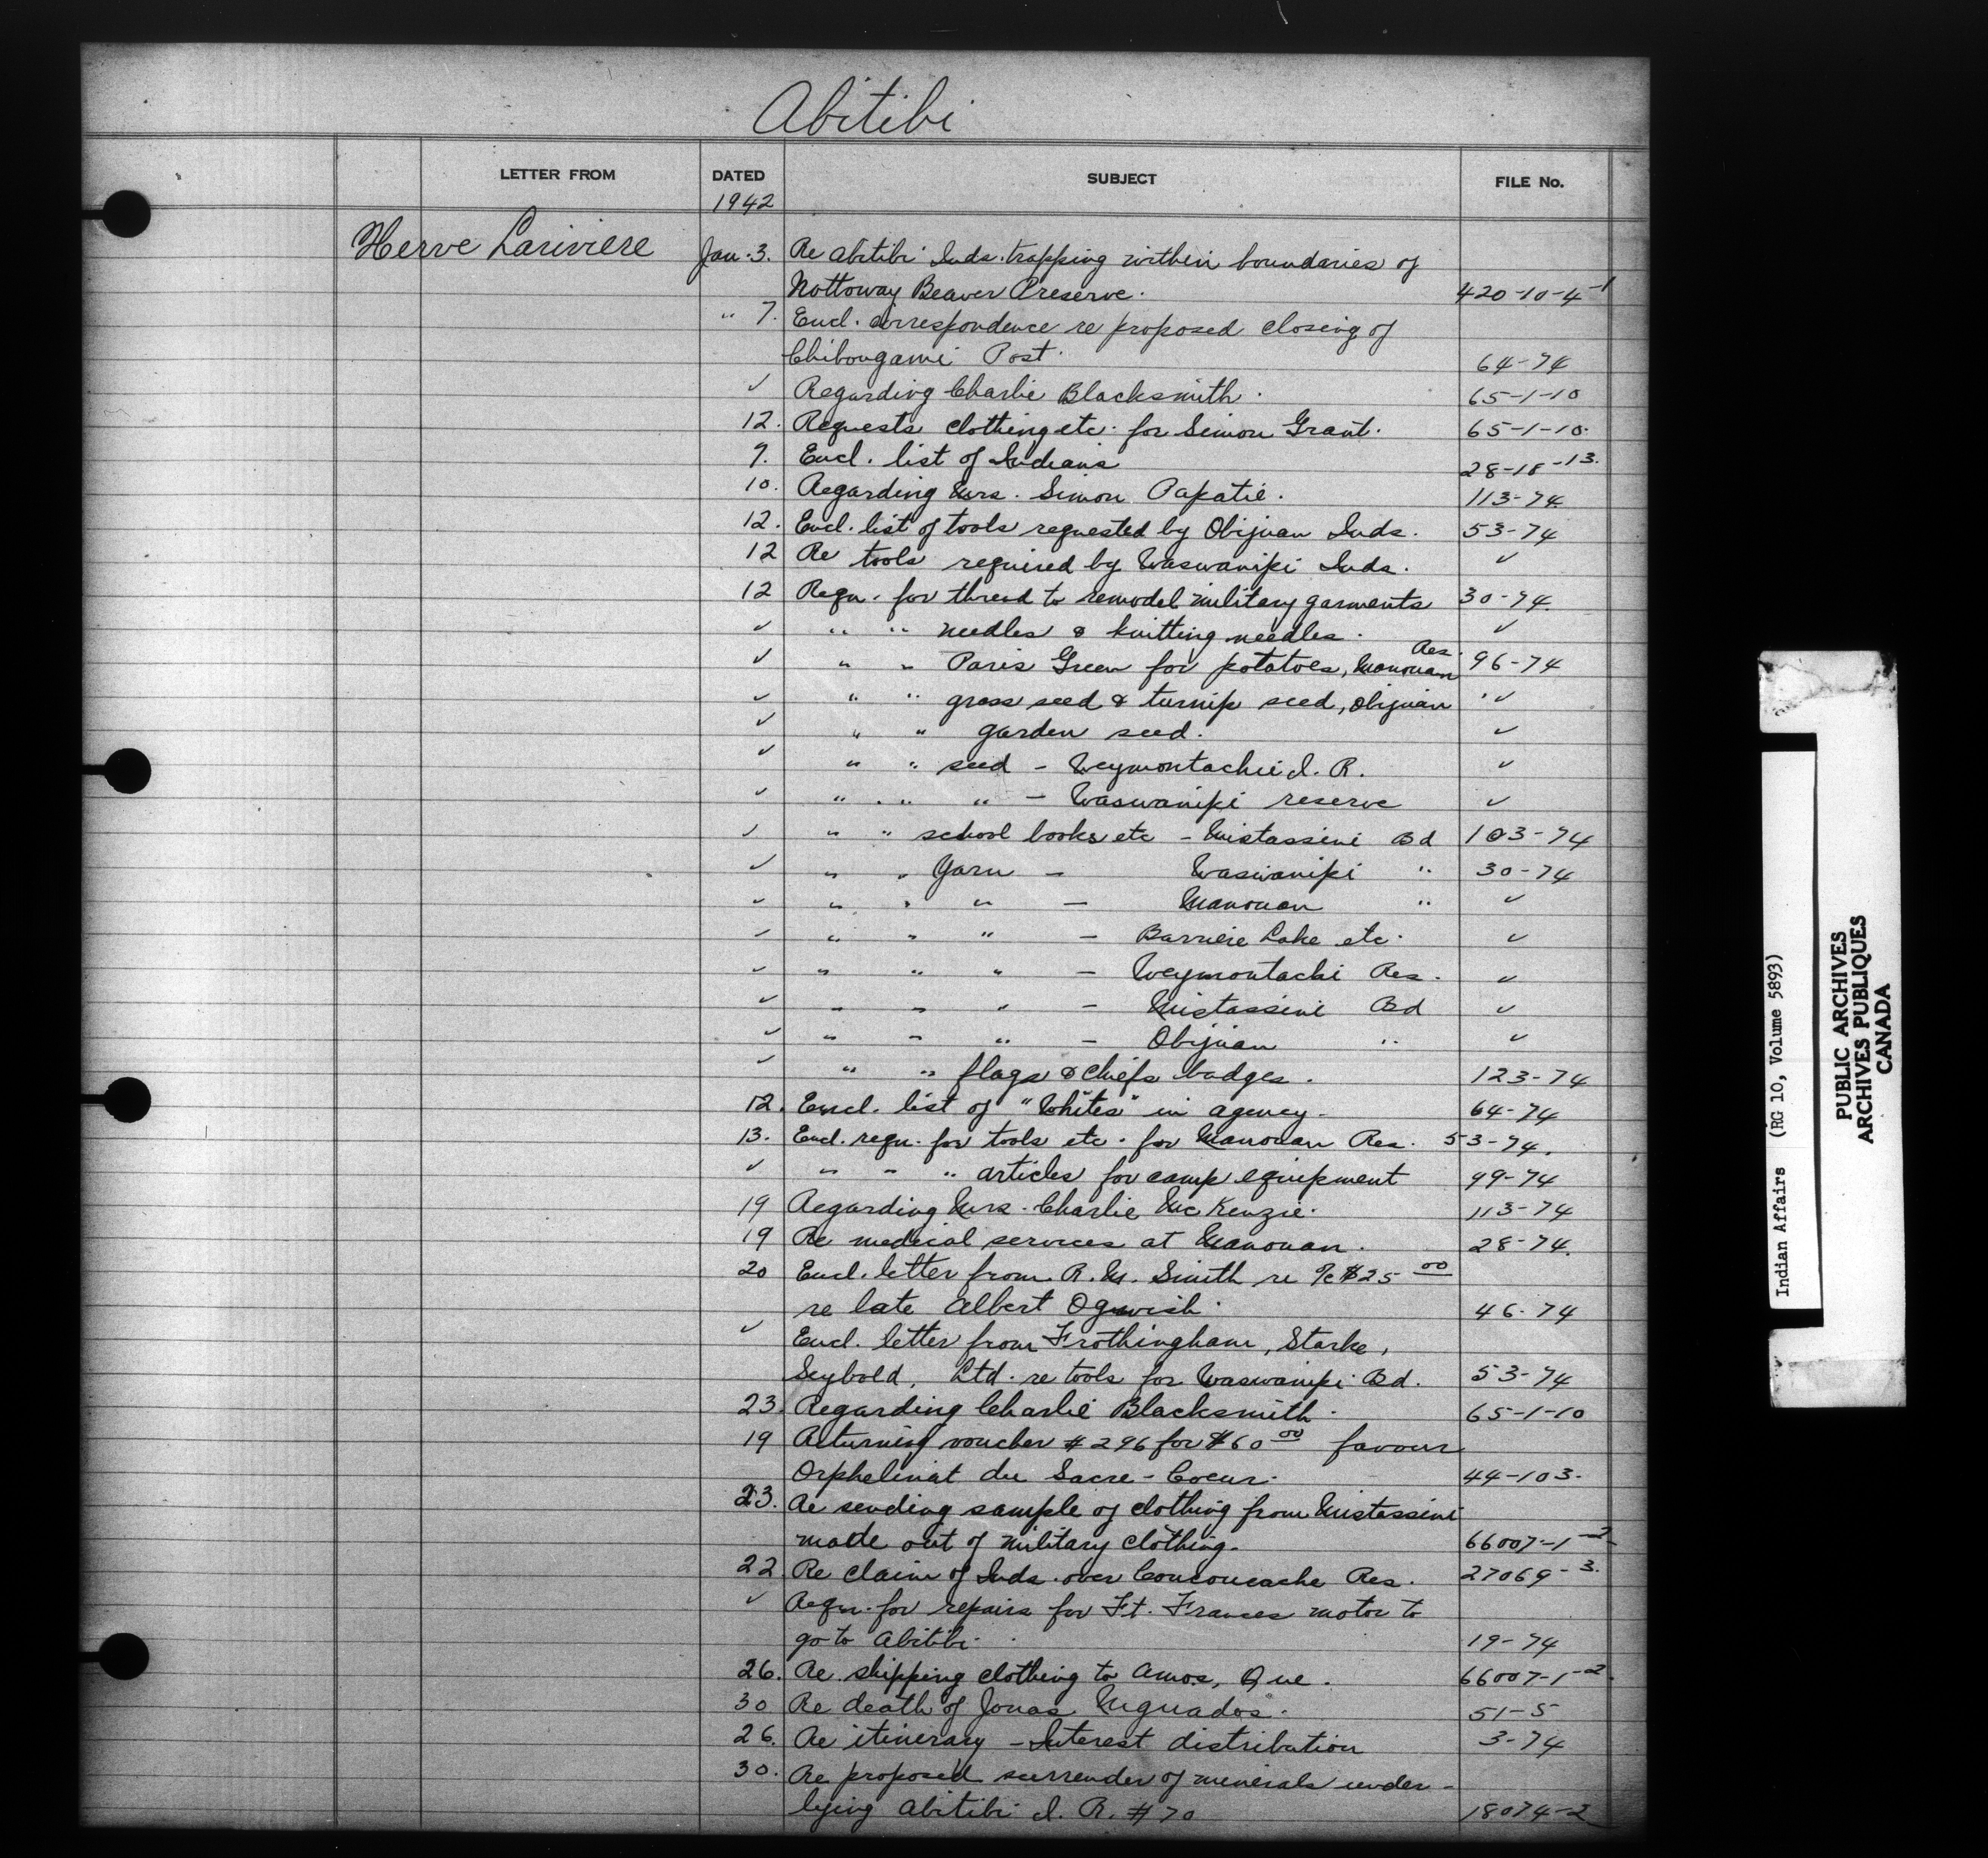 Abitibi
LETTER FROM DATED SUBJECT FILE No.
1942
Herve Lariviere Jan. 3. Re Abitibi Inds. trapping within boundaries of
Nottoway Beaver Preserve. 420-10-4-1
" 7. Encl. correspondence re proposed closing of
Chibougami Post. 64-74
✓ Regarding Charlie Blacksmith. 65-1-10
12. Requests clothing etc. for Simon Grant. 65-1-10.
9. Encl. list of Indians 28-18-13.
10. Regarding Mrs. Simon Papatie. 113-74
12. Encl. list of tools requested by Obijuan Inds. 53-74
12 Re tools required by Waswanipi Inds. ✓
12 Requ. for thread to remodel military garments 30-74
✓ " " needles & knitting needles. ✓
✓ " " Paris Green for potatoes, Manouan Res. 96-74
✓ " " grass seed & turnip seed, Obijuan "✓
✓ " " garden seed. ✓
✓ " " seed - Weymontachie I. R. ✓
✓ " " " - Waswanipi reserve ✓
✓ " " school books etc - Mistassini Bd 103-74
✓ " " Yarn - Waswanipi " 30-74
✓ " " " - Manouan " ✓
✓ " " " - Barriere Lake etc. ✓
✓ " " " - Weymontachi Res. ✓
✓ " " " - Mistassini Bd ✓
✓ " " " - Obijuan " ✓
✓ " " flags & chiefs badges. 123-74
12. Encl. list of "Whites" in agency. 64-74
13. Encl. requ. for tools etc. for Manouan Res. 53-74.
✓ " " " articles for camp equipment 99-74
19 Regarding Mrs. Charlie McKenzie. 113-74
19 Re medical services at Manouan. 28-74.
20 Encl. letter from R. M. Smith re a/c $25 00
re late Albert Ogwish. 46-74
✓ Encl. letter from Frothingham, Starke,
Seybold, Ltd. re tools for Waswanipi Bd. 53-74
23. Regarding Charlie Blacksmith. 65-1-10
19 Returning voucher # 296 for $60 00 favour
Orphelinat du Sacre-Coeur. 44-103.
23. Re sending sample of clothing from Mistassini
made out of military clothing. 66007-1-2
22 Re claim of Inds. over Coucoucache Res. 27069-3.
✓ Requ. for repairs for Ft. Frances motor to
go to Abitibi. 19-74
26. Re shipping clothing to Amos, Que. 66007-1-2.
30 Re death of Jonas 51-5
26. Re itinerary - Interest distribution 3-74
30. Re proposed surrender of minerals under-
lying Abitibi I. R. # 70 18074-2
Indian Affairs (RG 10, Volume 5893)
PUBLIC ARCHIVES
ARCHIVES PUBLIQUES
CANADA